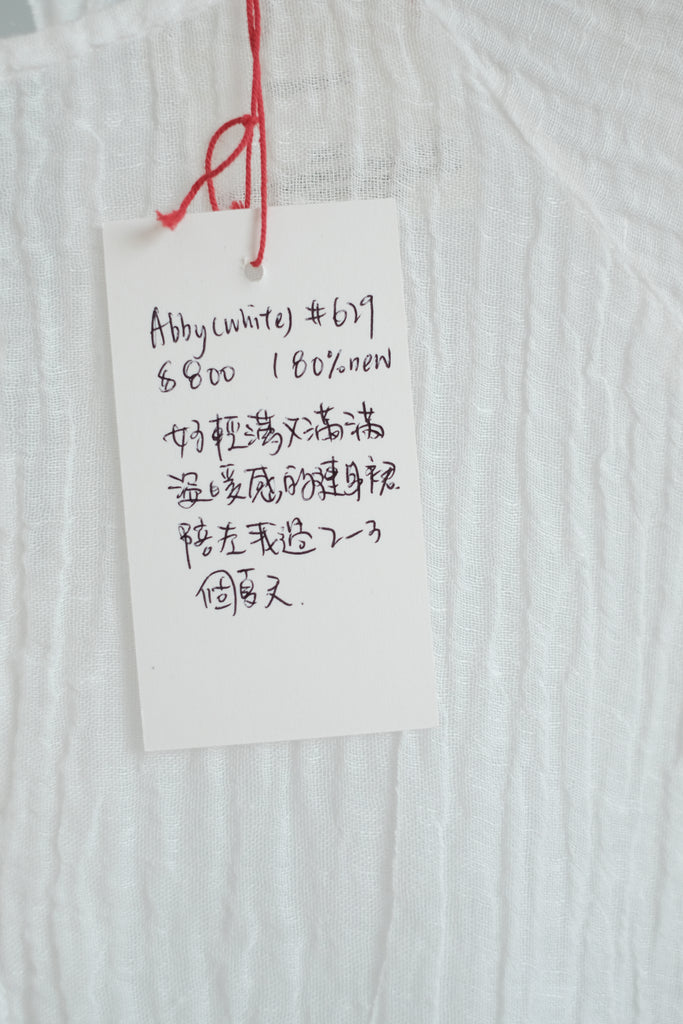 Abby(white) #629
$800 | 80%new
好輕薄又滿滿
溫暖感的連身裙
陪在我過2-3
個夏天.